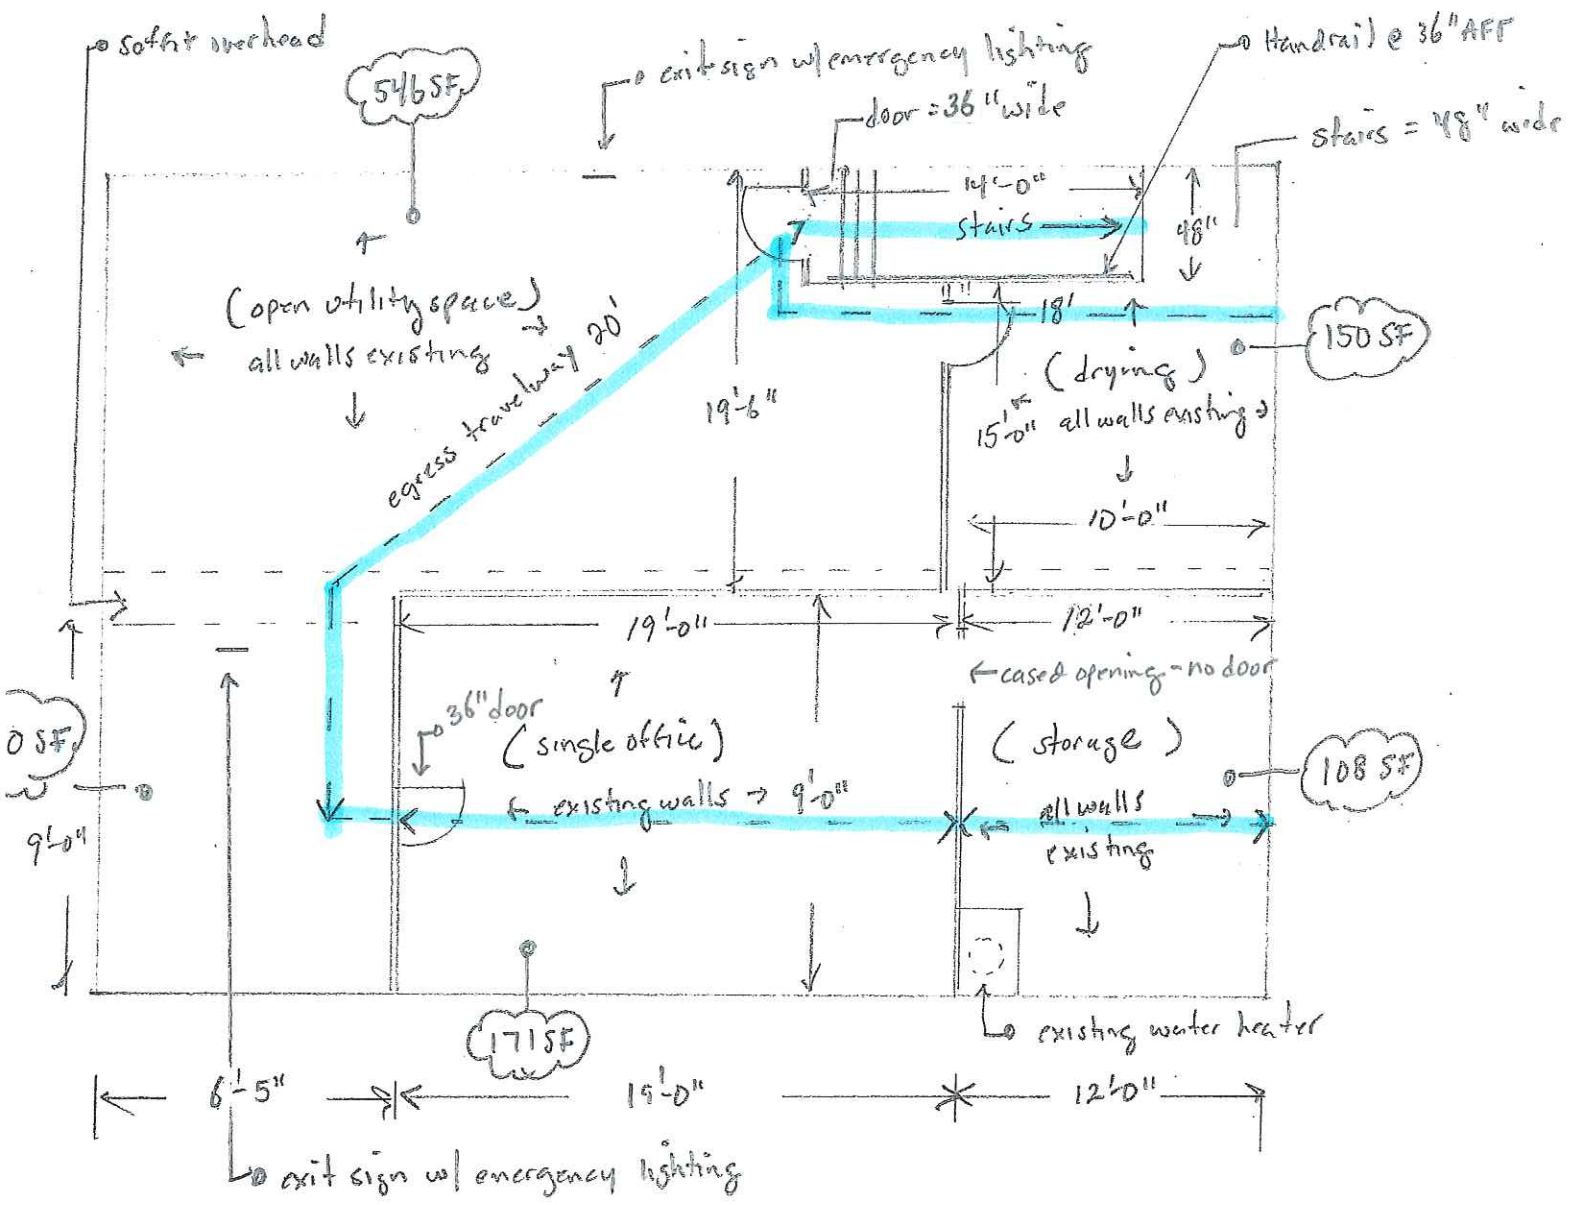 soffit overhead
546 SF
exit sign w/ emergency lighting
Handrail @ 36" AFF
door = 36" wide
stairs = 48" wide
14'-0"
stairs
48"
(open utility space)
all walls existing
egress travelway 20'
18'
150 SF
(drying)
all walls existing
19'-6"
15'-0"
10'-0"
19'-0"
12'-0"
cased opening - no door
36" door
(single office)
(storage)
0 SF
108 SF
existing walls
9'-0"
all walls
existing
9'-0"
171 SF
existing water heater
6'-5"
19'-0"
12'-0"
exit sign w/ emergency lighting